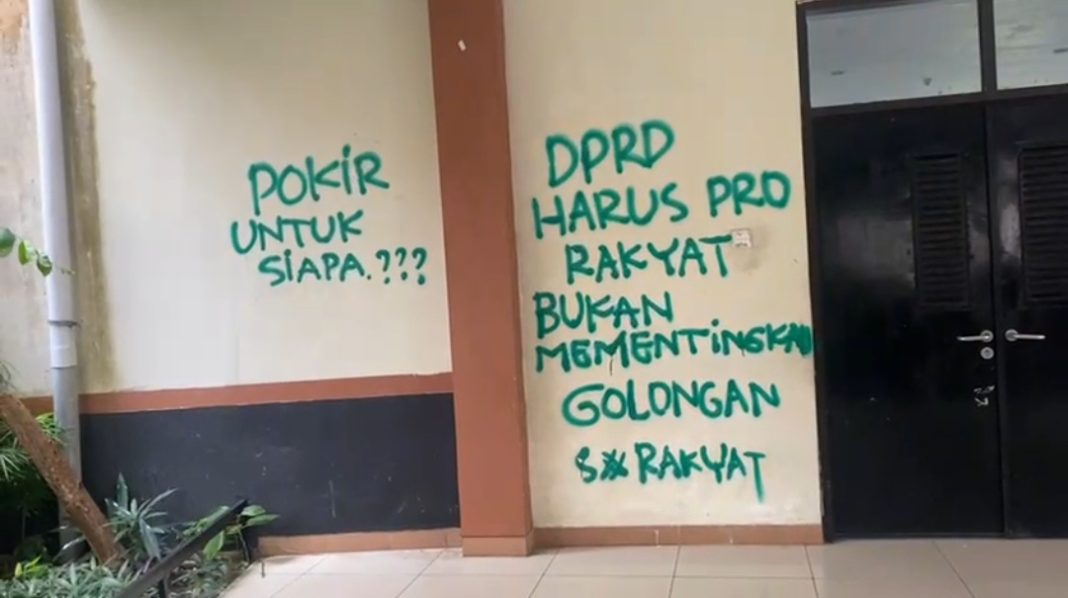 POKiR
UNTUK
SiAPA.???
DPRD
HARUS PRO
RAKYAT
BUKAN
MEMENTiNGKAN
GOLONGAN
RAKYAT